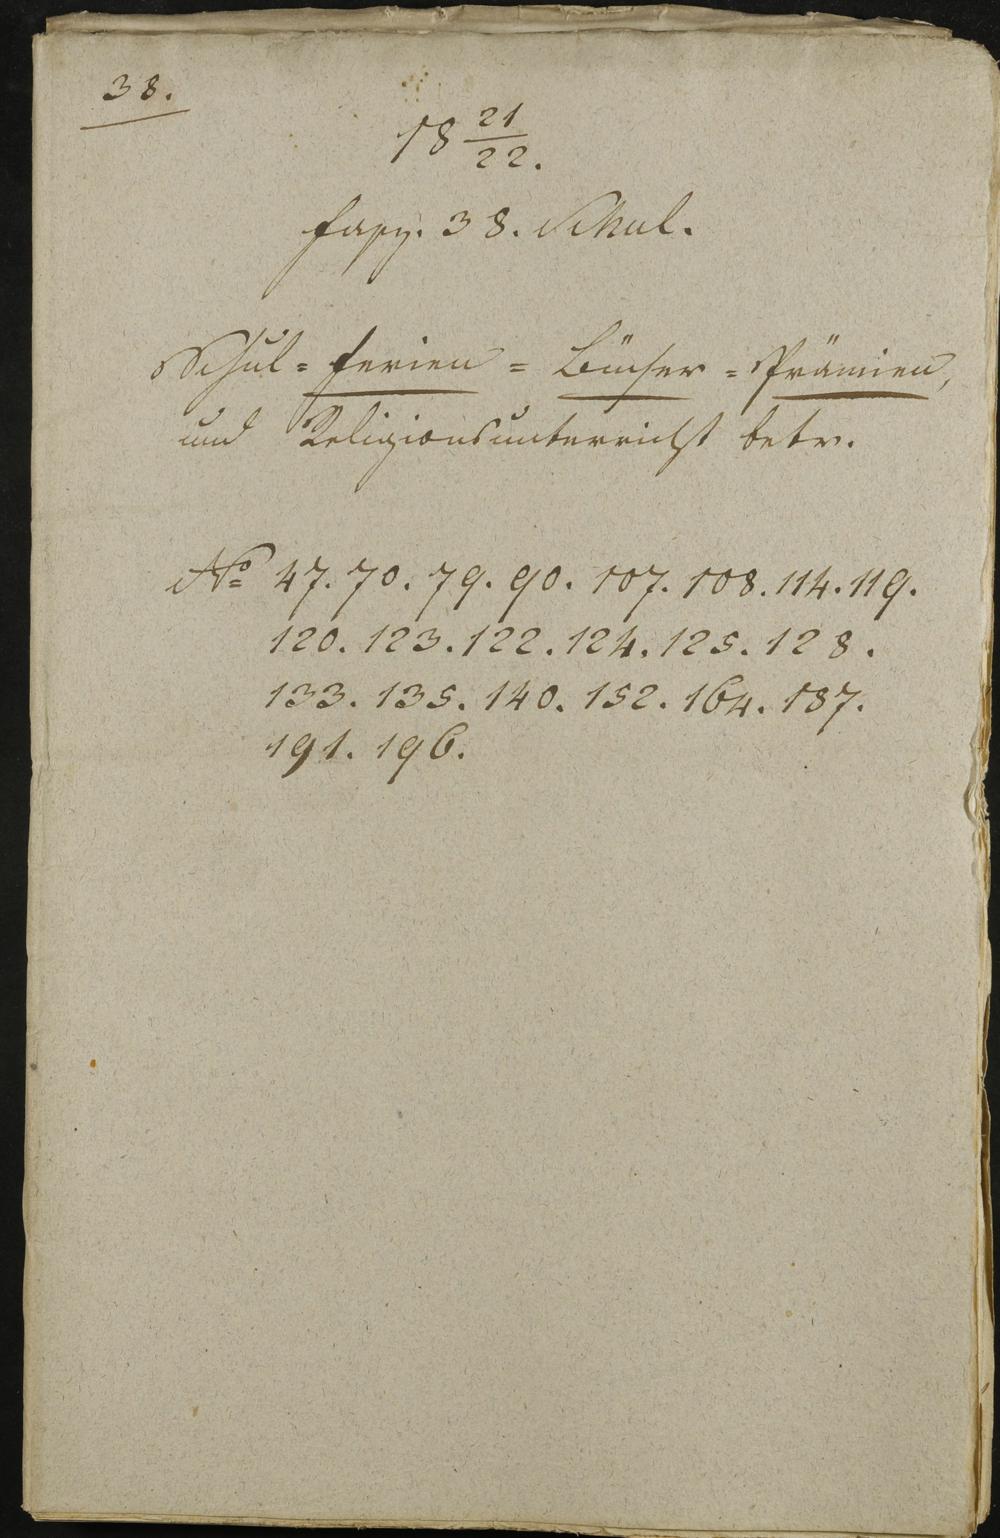 38.
18 21/22.
Fasz. 38. Schul.
Schul=Ferien=Bücher=Prämien,
und Religionsunterricht betr.
No 47. 70. 79. 90. 107. 108. 114. 119.
120. 123. 122. 124. 125. 128.
133. 135. 140. 152. 164. 187.
191. 196.